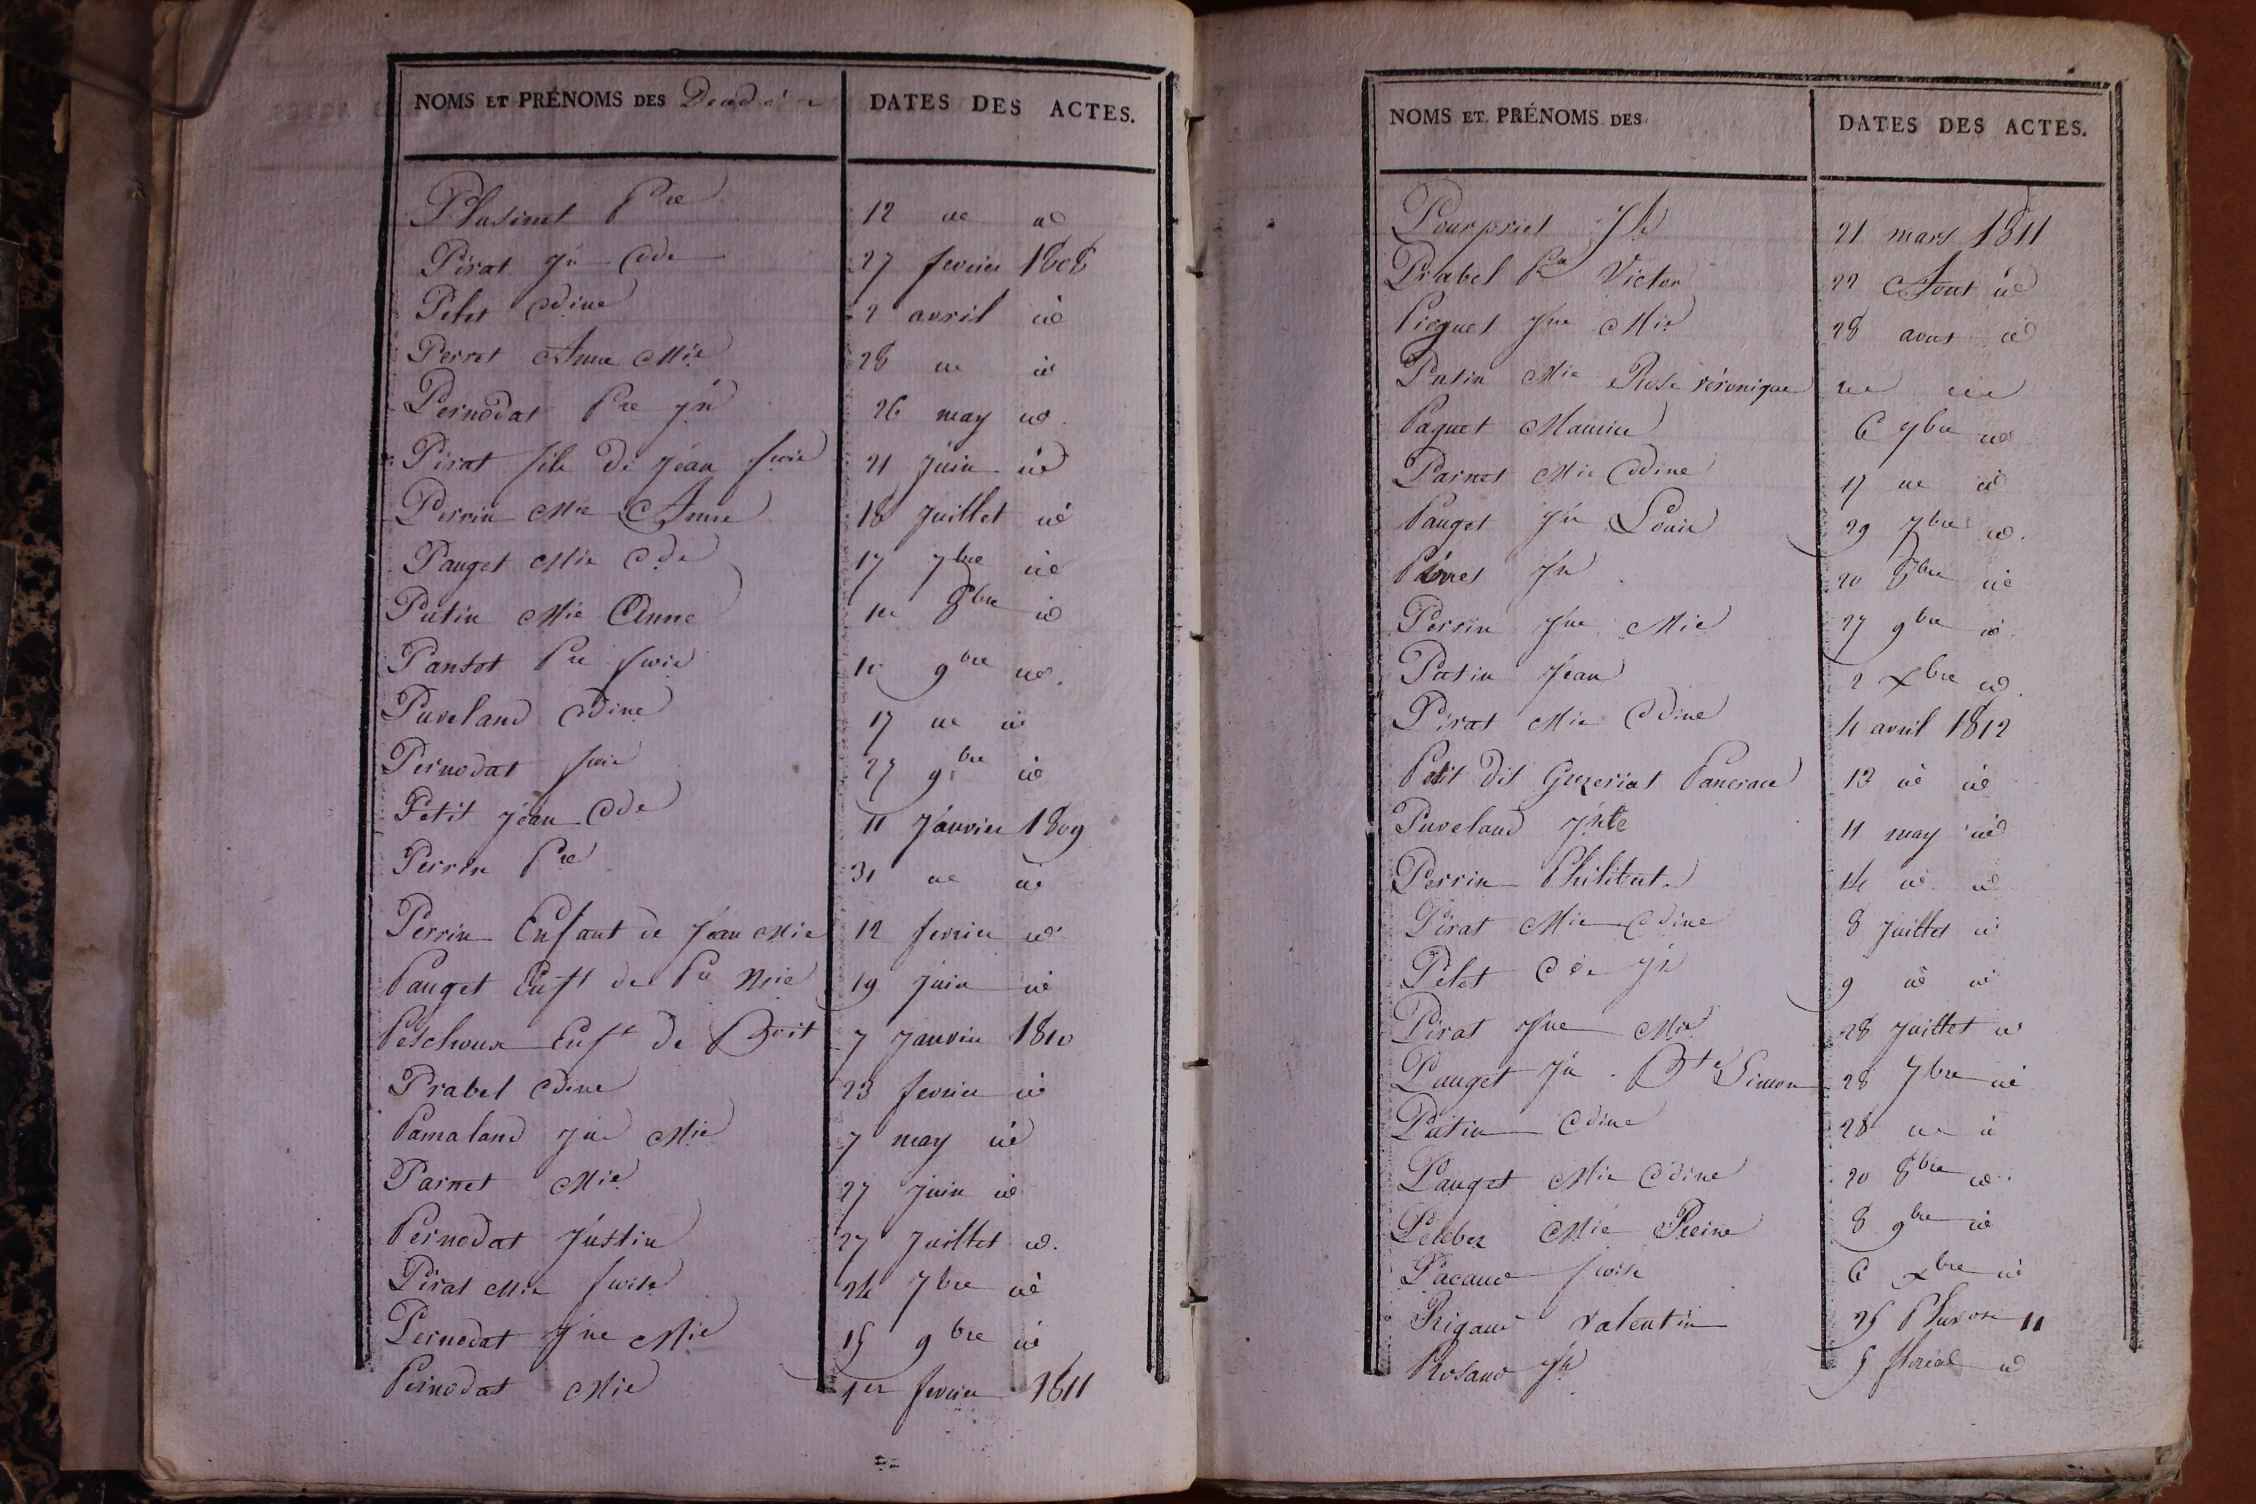 NOMS ET PRÉNOMS DES
DATES DES ACTES.
Plusinet Pre 12 ue ue
Pirat Jn Cde 27 fevrier 1808
Pelet Cdine 2 avril ué
Perret Anne Mie 28 ue ué
Pernodat Pre Jn 26 may ué
Pirat fils de Jean fcois 21 Juin ué
Perrin Mie Anne 18 Juillet ué
Pauget Mie Cde 17 7bre ué
Putin Mie Anne 1er 8bre ué
Pansot Pre fcois 10 9bre ué.
Puveland Cdine 17 ue ué
Pernodat fcois 27 9bre ué
Petit Jean Cde 11 Janvier 1809
Perrin Pre 31 ue ué
Perrin Enfant de Jean Mie 12 fevrier ué
Pauget Enft de Pre Mie 19 Juin ué
Peschoux Enft de Boit 7 Janvier 1810
Prabel Cdine 23 fevrier ué
Pamaland Jne Mie 7 may ué
Parnet Mie 27 Juin ué
Pernodat Justin 27 Juillet ué.
Pirat Mie fcoise 24 7bre ué
Pernodat Jne Mie 15 9bre ué
Pernodat Mie 1er fevrier 1811
NOMS ET PRÉNOMS DES
DATES DES ACTES.
Pourpriet Jh 21 mars 1811
Prabel Victor 22 Aout ué
Piquet Jne Mie 28 aout ué
Putin Mie Rose véronique ue ue
Paquet Maurice 6 ué
Parnet Mie Cdine 17 ue ué
Pauget Jn Louis 29 7bre ué.
Jn 20 8bre ué
Perrin Jne Mie 27 9bre ué.
Putin Jean 2 Xbre ué.
Pirat Mie Cdine 4 avril 1812
Petit dit Guzeriat Pancrace 13 ué ué
Puveland Jnte 11 may ué
Perrin Philibert 14 ué ué
Pirat Mie Cdine 8 Juillet ué
Pelet Cde Jn 9 ué ué
Pirat Jne Mie 28 Juillet ué
Pauget Jn Bte Simon 28 7bre ué
Putin Cdine 28 ue ué
Pauget Mie Cdine 20 8bre ué.
Mie Reine 8 9bre ué
Pacaud fcois 6 Xbre ué
Rigaud valentin 25 Pluvose 11
Rosand Jh 5 floréal ué